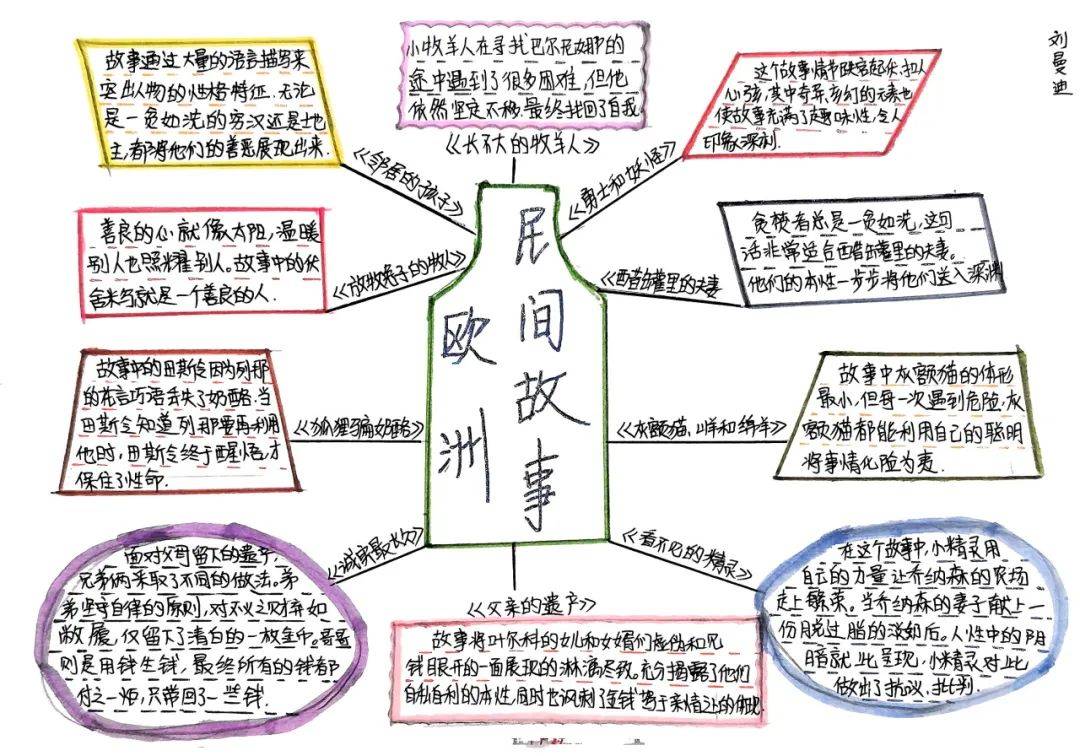 刘曼迪
欧洲
民间故事
故事通过大量的语言描写来
突出人物的性格特征.无论
是一贫如洗的穷汉还是地
主,都将他们的善恶展现出来.
《邻居的孩子》
小牧羊人在寻找巴尔尼娜的
途中遇到了很多困难,但他
依然坚定不移.最终找回了自我
《长不大的牧羊人》
这个故事情节跌宕起伏,扣人
心弦,其中奇异,玄幻的元素也
使故事充满了趣味性,令人
印象深刻.
《勇士和妖怪》
善良的心就像太阳,温暖
别人也照耀别人。故事中的伏
就是一个善良的人.
《放牧兔子的牧人》
贪婪者总是一贫如洗,这句
话非常适合醋罐里的夫妻。
他们的本性一步步将他们送入深渊
《醋罐里的夫妻
故事中的田斯令因为列那
的花言巧语丢失了奶酪.当
田斯令知道列那要再利用
他时,田斯令终于醒悟,才
保住了性命.
《狐狸骗奶酪》
故事中灰额猫的体形
最小,但每一次遇到危险,灰
额猫都能利用自己的聪明
将事情化险为夷.
《灰额猫,山羊和绵羊》
面对父母留下的遗产,
兄弟俩采取了不同的做法。弟
弟坚守自律的原则,对不义之财弃如
敝屣,仅留下了清白的一枚金币。哥哥
则是用钱生钱,最终所有的钱都
付之一炬,只带回了一些钱.
《诚实最长久》
故事将叶尔科的女儿和女婿们虚伪和见
钱眼开的一面展现的淋漓尽致.充分揭露了他们
自私自利的本性,同时也讽刺了金钱 于亲情让的
《父亲的遗产》
在这个故事中,小精灵用
自己的力量让乔纳森的农场
走上繁荣。当乔纳森的妻子献上一
份脱过脂的淡奶后。人性中的阴
暗就此呈现.小精灵对此
做出了抗议,批判.
《看不见的精灵》